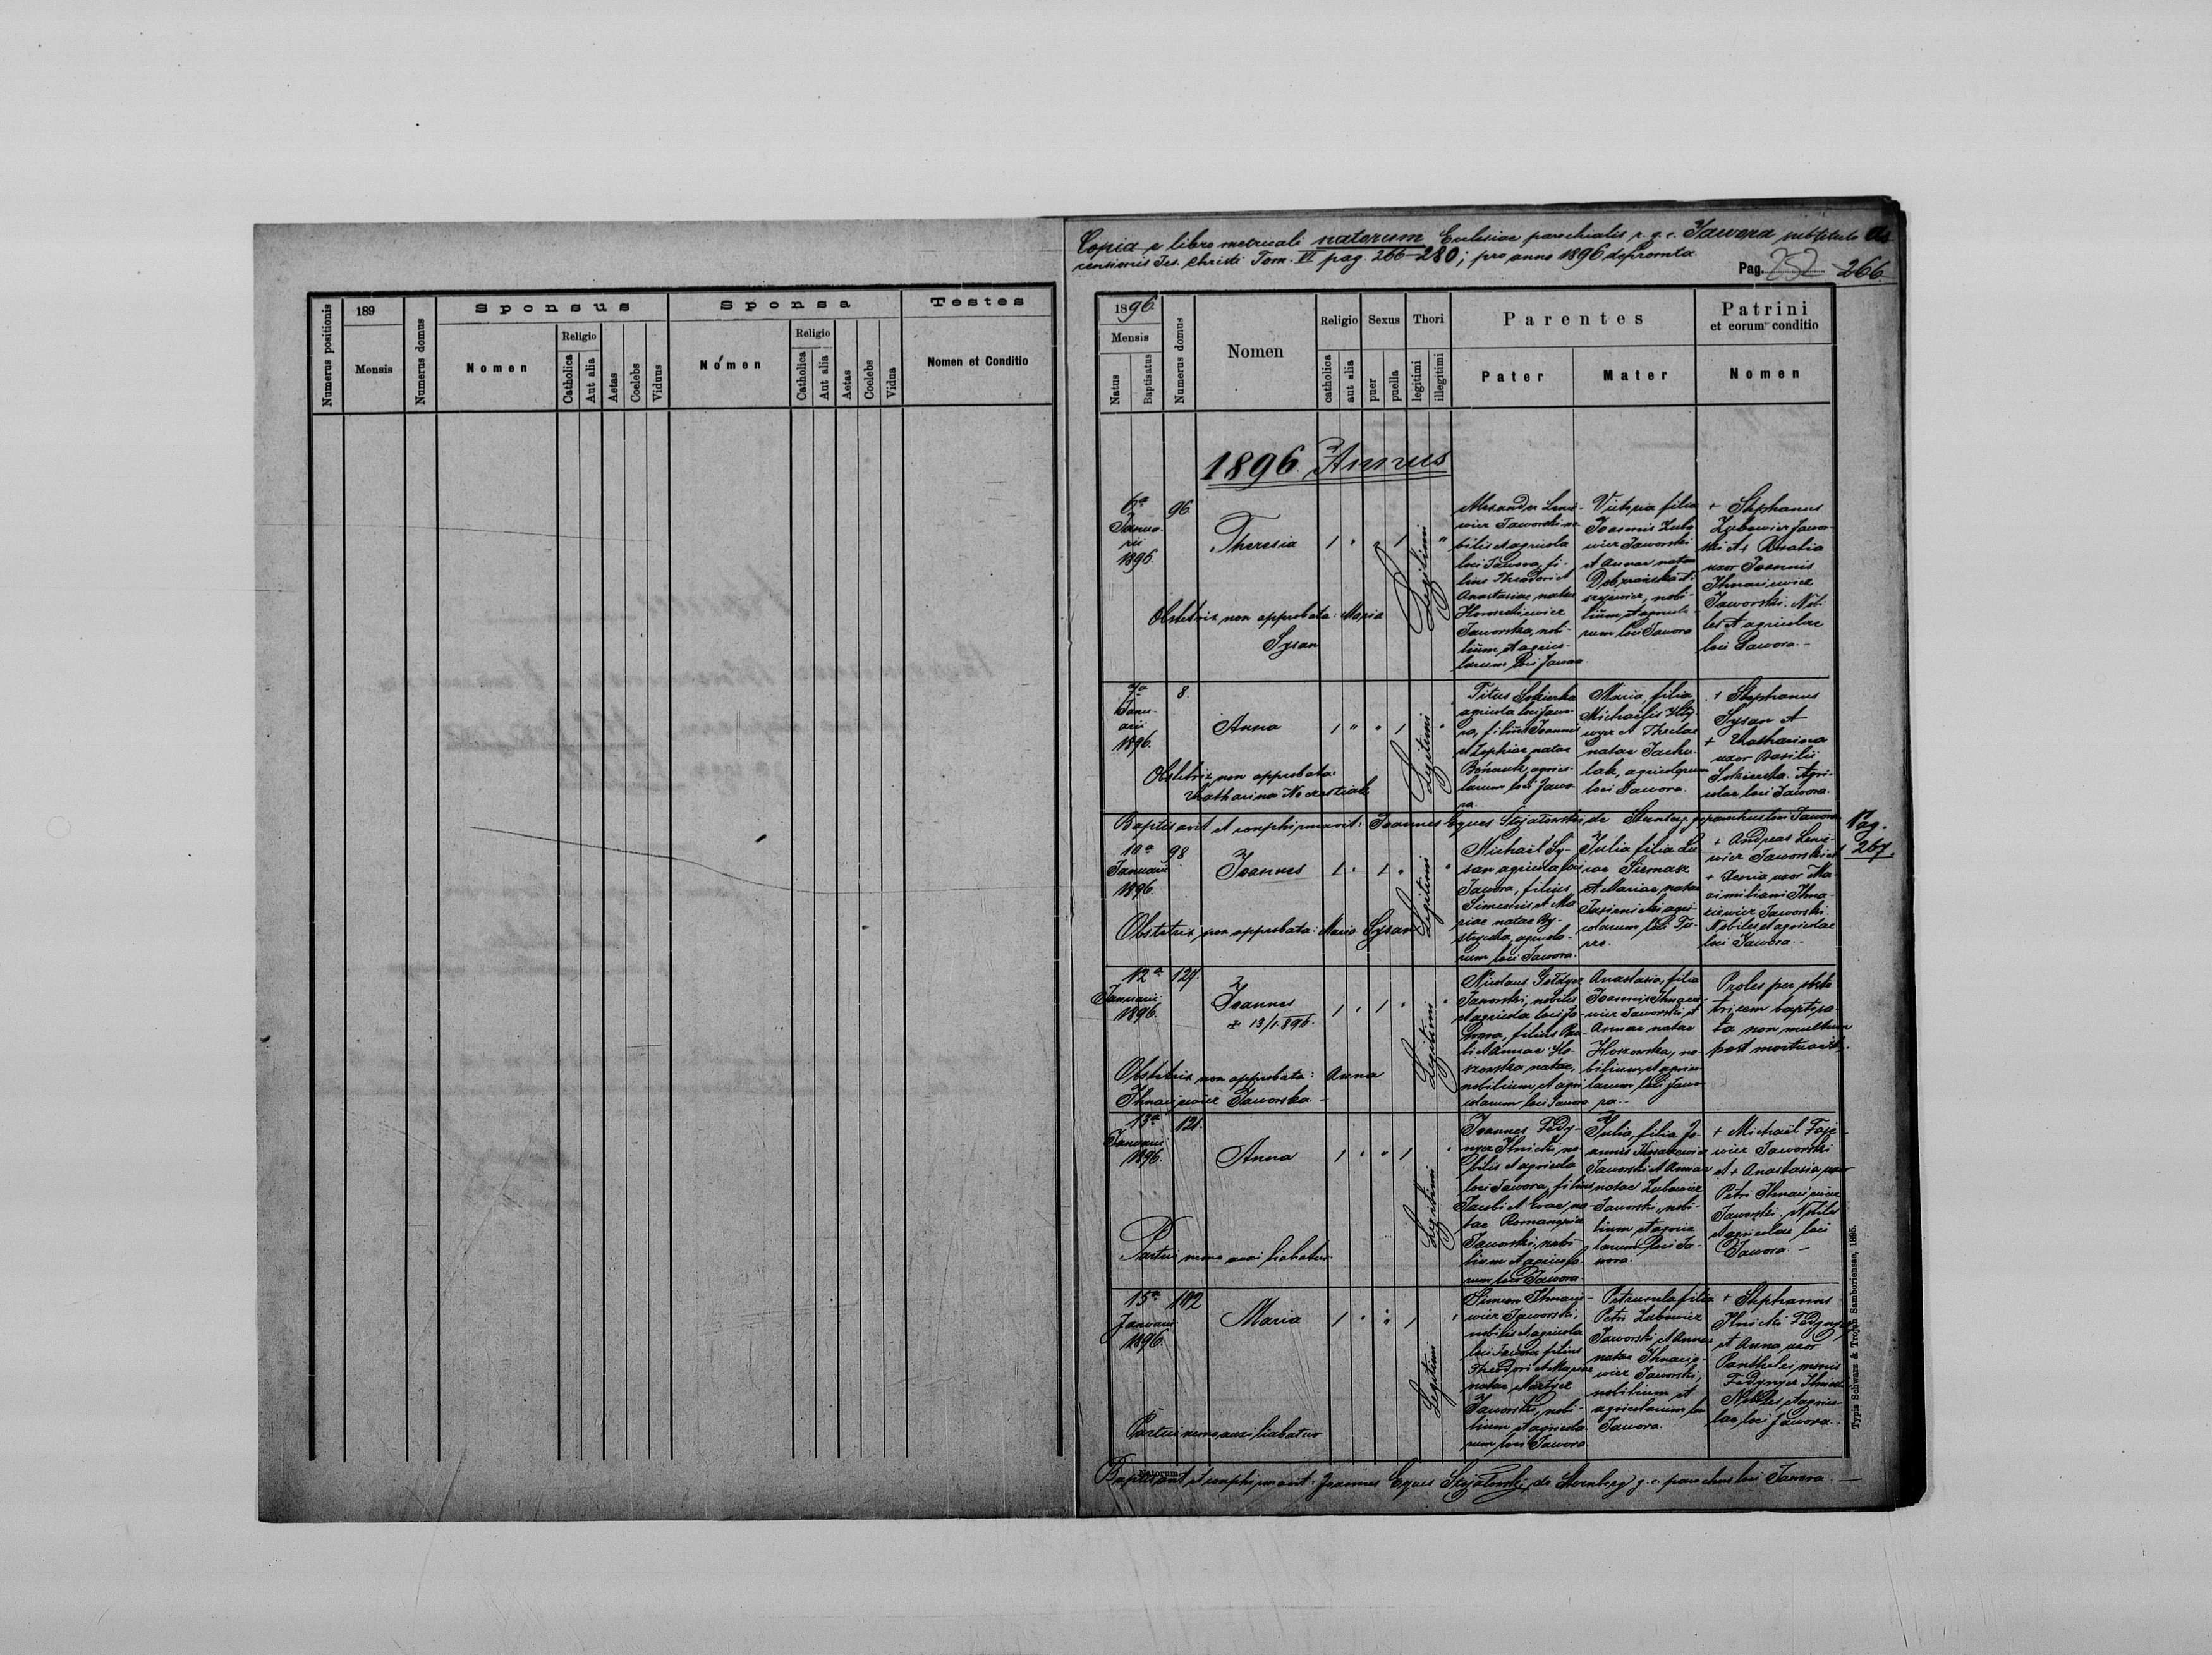 Numerus positionis
189
Mensis
Numerus domus
Sponsus
Nomen
Religio
Catholica
Aut alia
Aetas
Coelebs
Viduus
Sponsa
Nomen
Religio
Catholica
Aut alia
Aetas
Coelebs
Vidua
Testes
Nomen et Conditio
Copia e libro metricali natorum Ecclesiae parochialis r. g. c. Jawora sub titulo As
censionis Jes. Christi Tom. VI pag. 266-280; pro anno 1896 depromta
Pag. 266.
1896
Mensis
Natus
Baptisatus
Numerus domus
Nomen
Religio
catholica
aut alia
Sexus
puer
puella
Thori
legitimi
illegitimi
Parentes
Pater
Mater
Patrini
et eorum conditio
Nomen
1896 Annus
6a
Janua
rii
1896.
96.
Theresia
1 " " 1 "
Legitimi
Obstetrix non approbata: Maria
Sysan
Alexander Lewi-
wicz Jaworski no-
bilis et agricola
loci Jawora, fi-
lius Theodori et
Anastasiae natae
Jaworska, nobi-
lium et agrico-
larum loci Jawora
Victoria filia
Joannis Zubo
wicz Jaworski
et Annae natae
nobi-
lium et agricola-
rum loci Jawora
+ Stephanus
Zubowicz Jawor-
ski et + Rosalia
uxor Joannis
Ihnaciewicz
Jaworski. Nobi-
les et agricolae
loci Jawora.-
7a
Janu-
arii
1896.
8.
Anna
1 " " 1 "
Legitimi
Obstetrix non approbata:
Katharina
Titus
agricola loci Jawo-
ra, filius Joannis
et Sophiae natae
agrico-
larum loci Jawo-
ra.
Maria, filia
Michaelis
et Theclae
natae Jachu-
lak, agricolarum
loci Jawora.
+ Stephanus
Sysan et
+ Katharina
uxor Basilii
Agri-
colae loci Jawora.
Baptisavit et confirmavit: Joannes Eques Stojałowski de Sternberg parochus loci Jawora
Pag.
267.
10a
Januarii
1896.
98.
Joannes
1 " 1 " "
Legitimi
Obstetrix non approbata: Maria Sysan
Michael Sy-
san agricola loci
Jawora, filius
Simeonis et Ma
riae natae By-
agricola-
rum loci Jawora.
Julia filia Lu
cae
et Mariae natae
agri-
colarum loci Tu-
rze.
+ Andreas Lewi-
wicz Jaworski et
+ Xenia uxor Ma-
ximiliani Ihna-
ciewicz Jaworski.
Nobiles et agricolae
loci Jawora.-
12a
Januarii
1896.
127.
Joannes
+ 13/1 896.
1 " 1 " "
Legitimi
Obstetrix non approbata: Anna
Ihnaciewicz Jaworska.-
Nicolaus
Jaworski, nobilis
et agricola loci Ja-
wora, filius Pau-
li et Annae Ho-
szowska natae,
nobilium et agri
colarum loci Jawora
Anastasia, filia
Joannis Ihnacie-
wicz Jaworski et
Annae natae
Hoszowska, no-
bilium et agrico-
larum loci Jawo
ra.-
Proles per obste
tricem baptisa-
ta non multum
post
13a
Januarii
1896.
121.
Anna
1 " " 1 "
Legitimi
Partui nemo auxiliabatur.
Joannes Fedy-
nycz Ilnicki, no-
bilis et agricola
loci Jawora, filius
Jacobi et Evae, na-
tae Romaniewicz
Jaworski, nobi-
lium et agricola-
rum loci Jawora.
Julia, filia Jo-
annis
Jaworski et Annae
natae Zubowicz
Jaworski, nobi-
lium et agrico
larum loci Ja-
wora.
+ Michaël
wicz Jaworski
et + Anastasia, uxor
Petri Ihnaciewicz
Jaworski. Nobiles
et agricolae loci
Jawora.-
15a
Januarii
1896.
142
Maria
1 " " 1 "
Legitimi
Partui nemo auxiliabatur
Simeon Ihnacie-
wicz Jaworski,
nobilis et agricola
loci Jawora, filius
Theodori et Mariae
natae
Jaworski, nobi-
lium et agricola-
rum loci Jawora.
Petronela filia
Petri Zubowicz
Jaworski et Annae
natae Ihnacie-
wicz Jaworski,
nobilium et
agricolarum loci
Jawora.
+ Stephanus
Ilnicki Fedynycz
et Anna uxor
Pantheleimonis
Fedynycz Ilnicki
Nobiles et agrico-
lae loci Jawora.
Natorum
Baptisavit et confirmavit: Joannes Eques Stojałowski de Sternberg g. c. parochus loci Jawora.-
Typis Schwarz & Trojan Samboriensae, 1895.